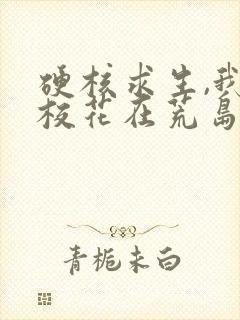 硬核求生,我
校花在荒岛
青栀未白